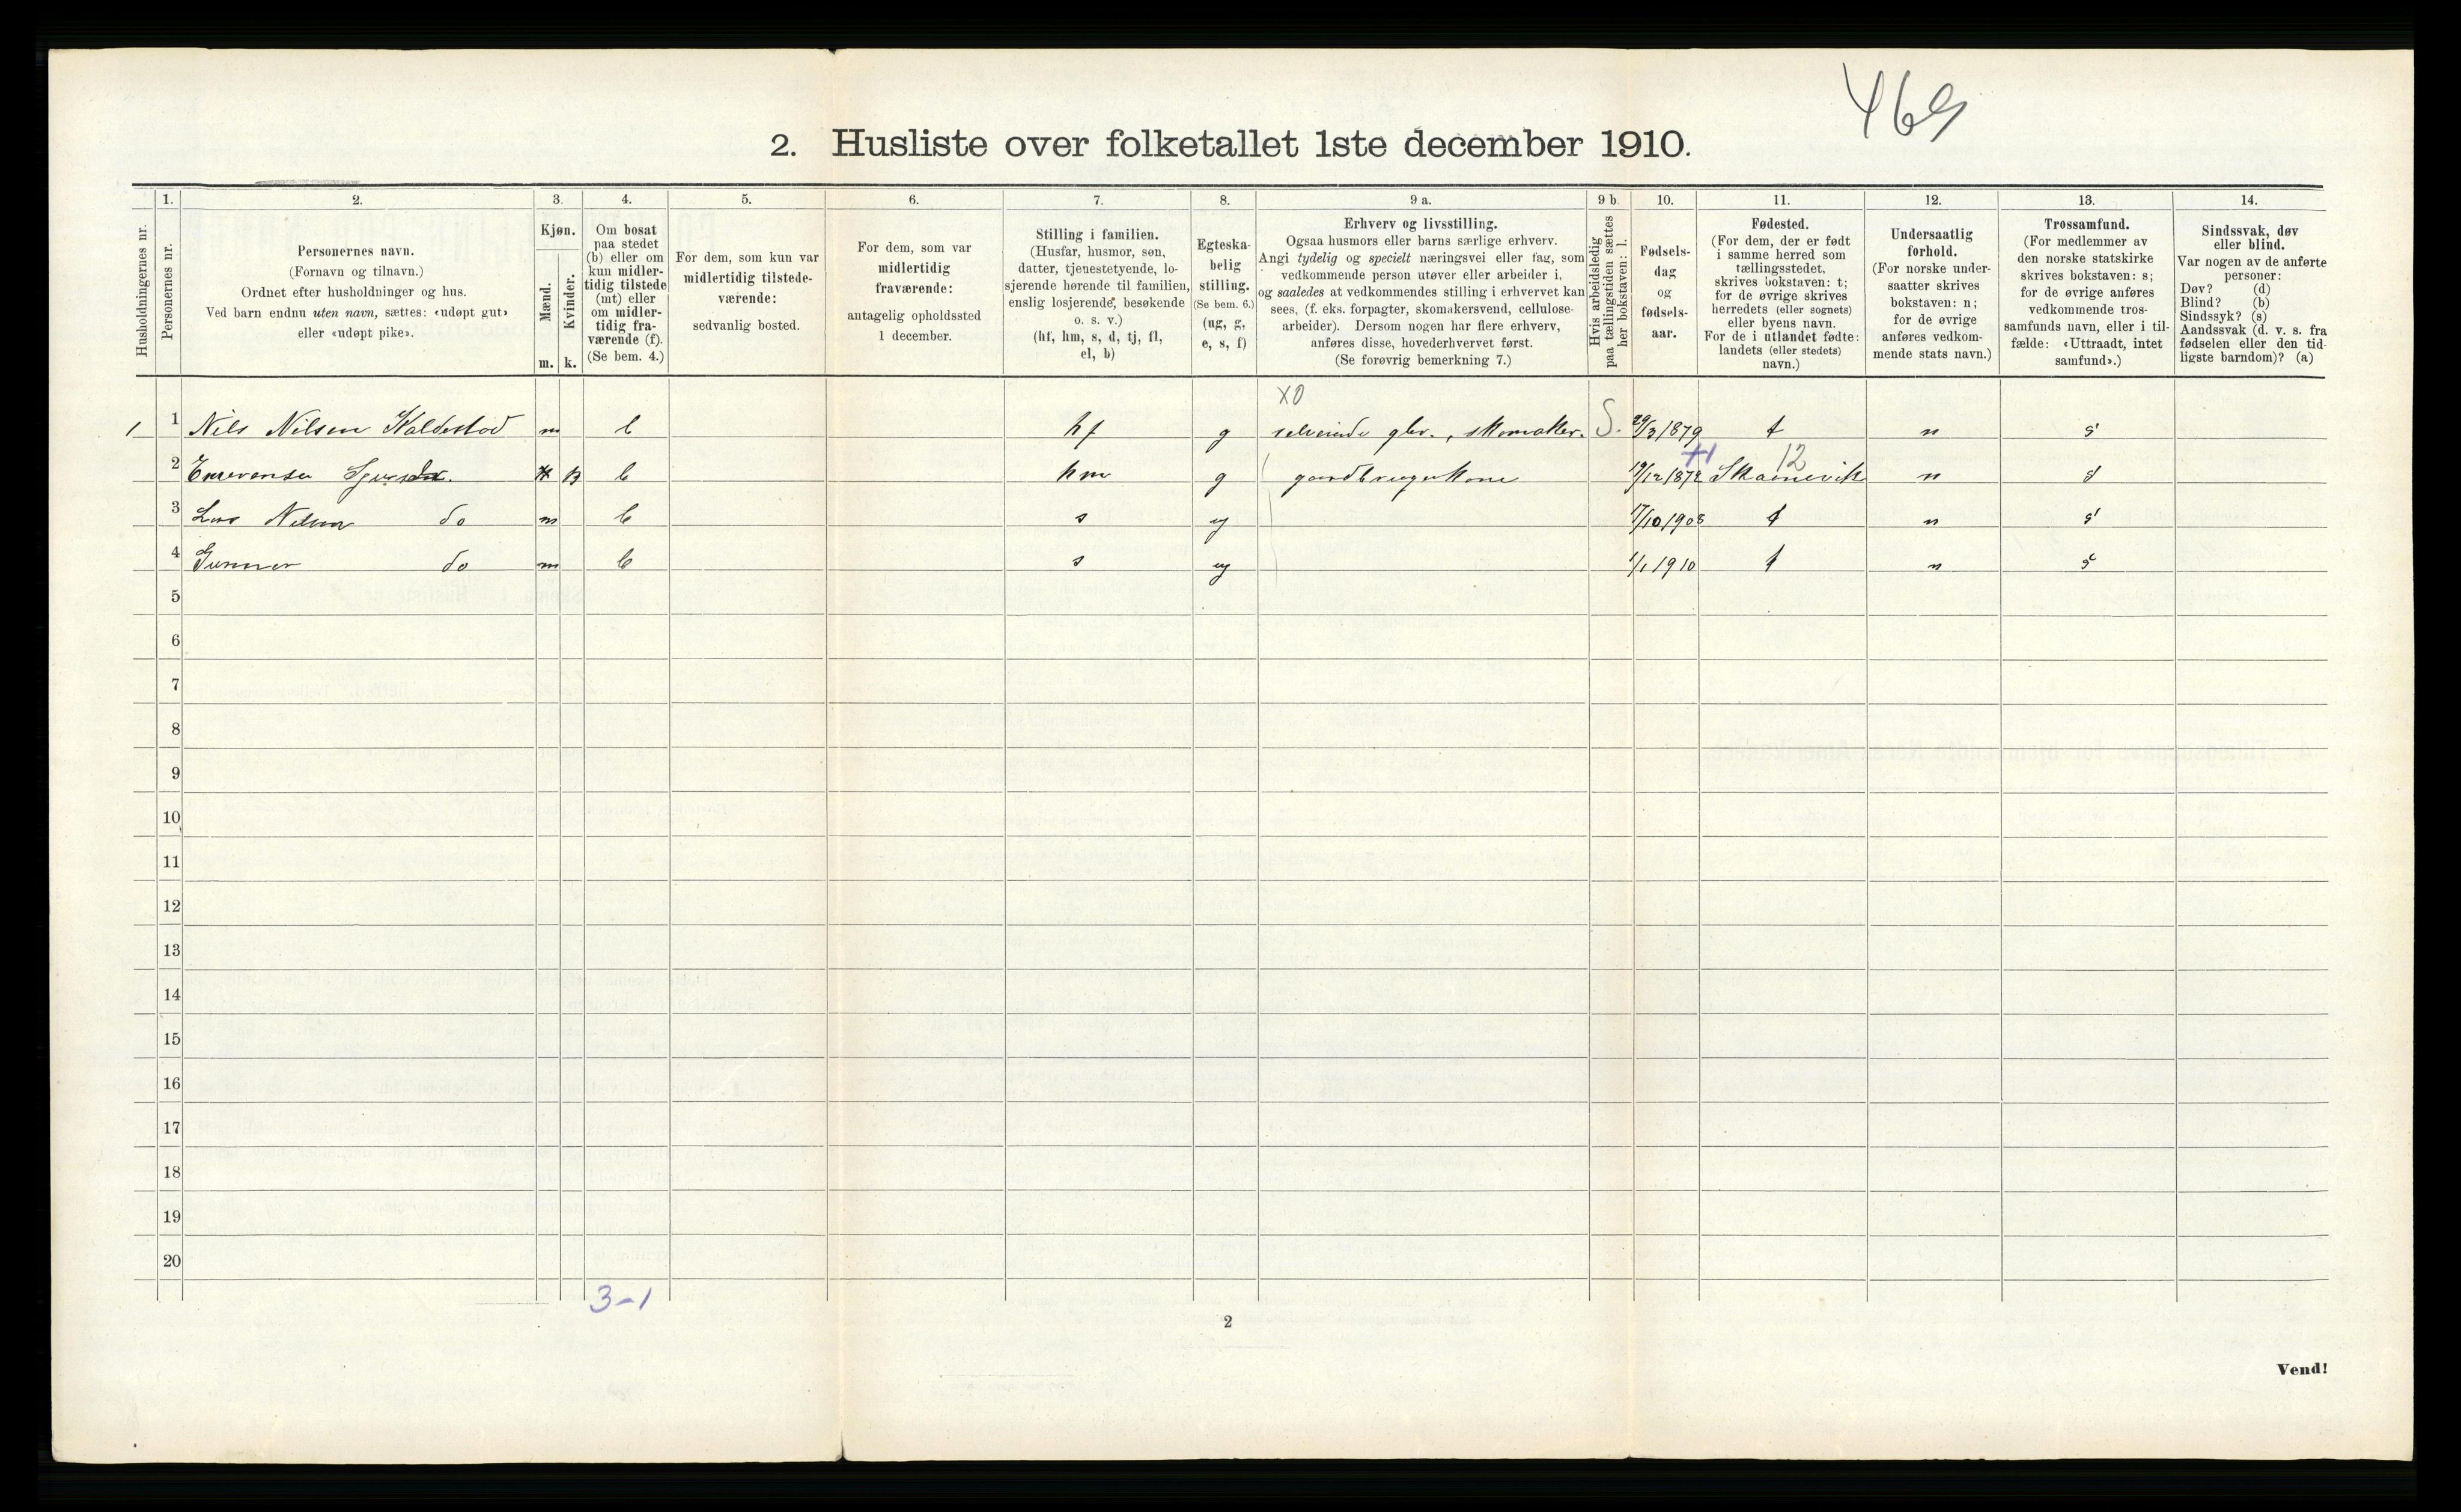 469
2. Husliste over folketallet 1ste december 1910.
Husholdningernes nr.
1.
Personernes nr.
2.
Personernes navn.
(Fornavn og tilnavn.)
Ordnet efter husholdninger og hus.
Ved barn endnu uten navn, sættes: «udøpt gut»
eller «udøpt pike».
3.
Kjøn.
Mænd.
Kvinder.
m. k.
4.
Om bosat
paa stedet
(b) eller om
kun midler-
tidig tilstede
(mt) eller
om midler-
tidig fra-
værende (f).
(Se bem. 4.)
5.
For dem, som kun var
midlertidig tilstede-
værende:
sedvanlig bosted.
6.
For dem, som var
midlertidig
fraværende:
antagelig opholdssted
1 december.
7.
Stilling i familien.
(Husfar, husmor, søn,
datter, tjenestetyende, lo-
sjerende hørende til familien,
enslig losjerende, besøkende
o. s. v.)
(hf, hm, s, d, tj, fl,
el, b)
8.
Egteska-
belig
stilling.
(Se bem. 6.)
(ug, g,
e, s, f)
9 a.
Erhverv og livsstilling.
Ogsaa husmors eller barns særlige erhverv.
Angi tydelig og specielt næringsvei eller fag, som
vedkommende person utøver eller arbeider i,
og saaledes at vedkommendes stilling i erhvervet kan
sees, (f. eks. forpagter, skomakersvend, cellulose-
arbeider). Dersom nogen har flere erhverv,
anføres disse, hovederhvervet først.
(Se forøvrig bemerkning 7.)
9 b.
Hvis arbeidsledig
paa tællingstiden sættes
her bokstaven: l.
10.
Fødsels-
dag
og
fødsels-
aar.
11.
Fødested.
(For dem, der er født
i samme herred som
tællingsstedet,
skrives bokstaven: t;
for de øvrige skrives
herredets (eller sognets)
eller byens navn.
For de i utlandet fødte:
landets (eller stedets)
navn.)
12.
Undersaatlig
forhold.
(For norske under-
saatter skrives
bokstaven: n;
for de øvrige
anføres vedkom-
mende stats navn.)
13.
Trossamfund.
(For medlemmer av
den norske statskirke
skrives bokstaven: s;
for de øvrige anføres
vedkommende tros-
samfunds navn, eller i til-
fælde: «Uttraadt, intet
samfund».)
14.
Sindssvak, døv
eller blind.
Var nogen av de anførte
personer:
Døv? (d)
Blind? (b)
Sindssyk? (s)
Aandssvak (d. v. s. fra
fødselen eller den tid-
ligste barndom)? (a)
X0
1 1 Nils Nilsen Haldestad m b hf g selveiende gbr., skomaker. S. 29/3 1879 t n s
12
2 k b hm g gaardbrugerkone 19/12 1872 Skaanevik n s
3 Lars Nilsen do m b s ug 17/10 1908 t n s
4 Gunnar do m b s ug 1/1 1910 t n s
5
6
7
8
9
10
11
12
13
14
15
16
17
18
19
20
3-1
2
Vend!